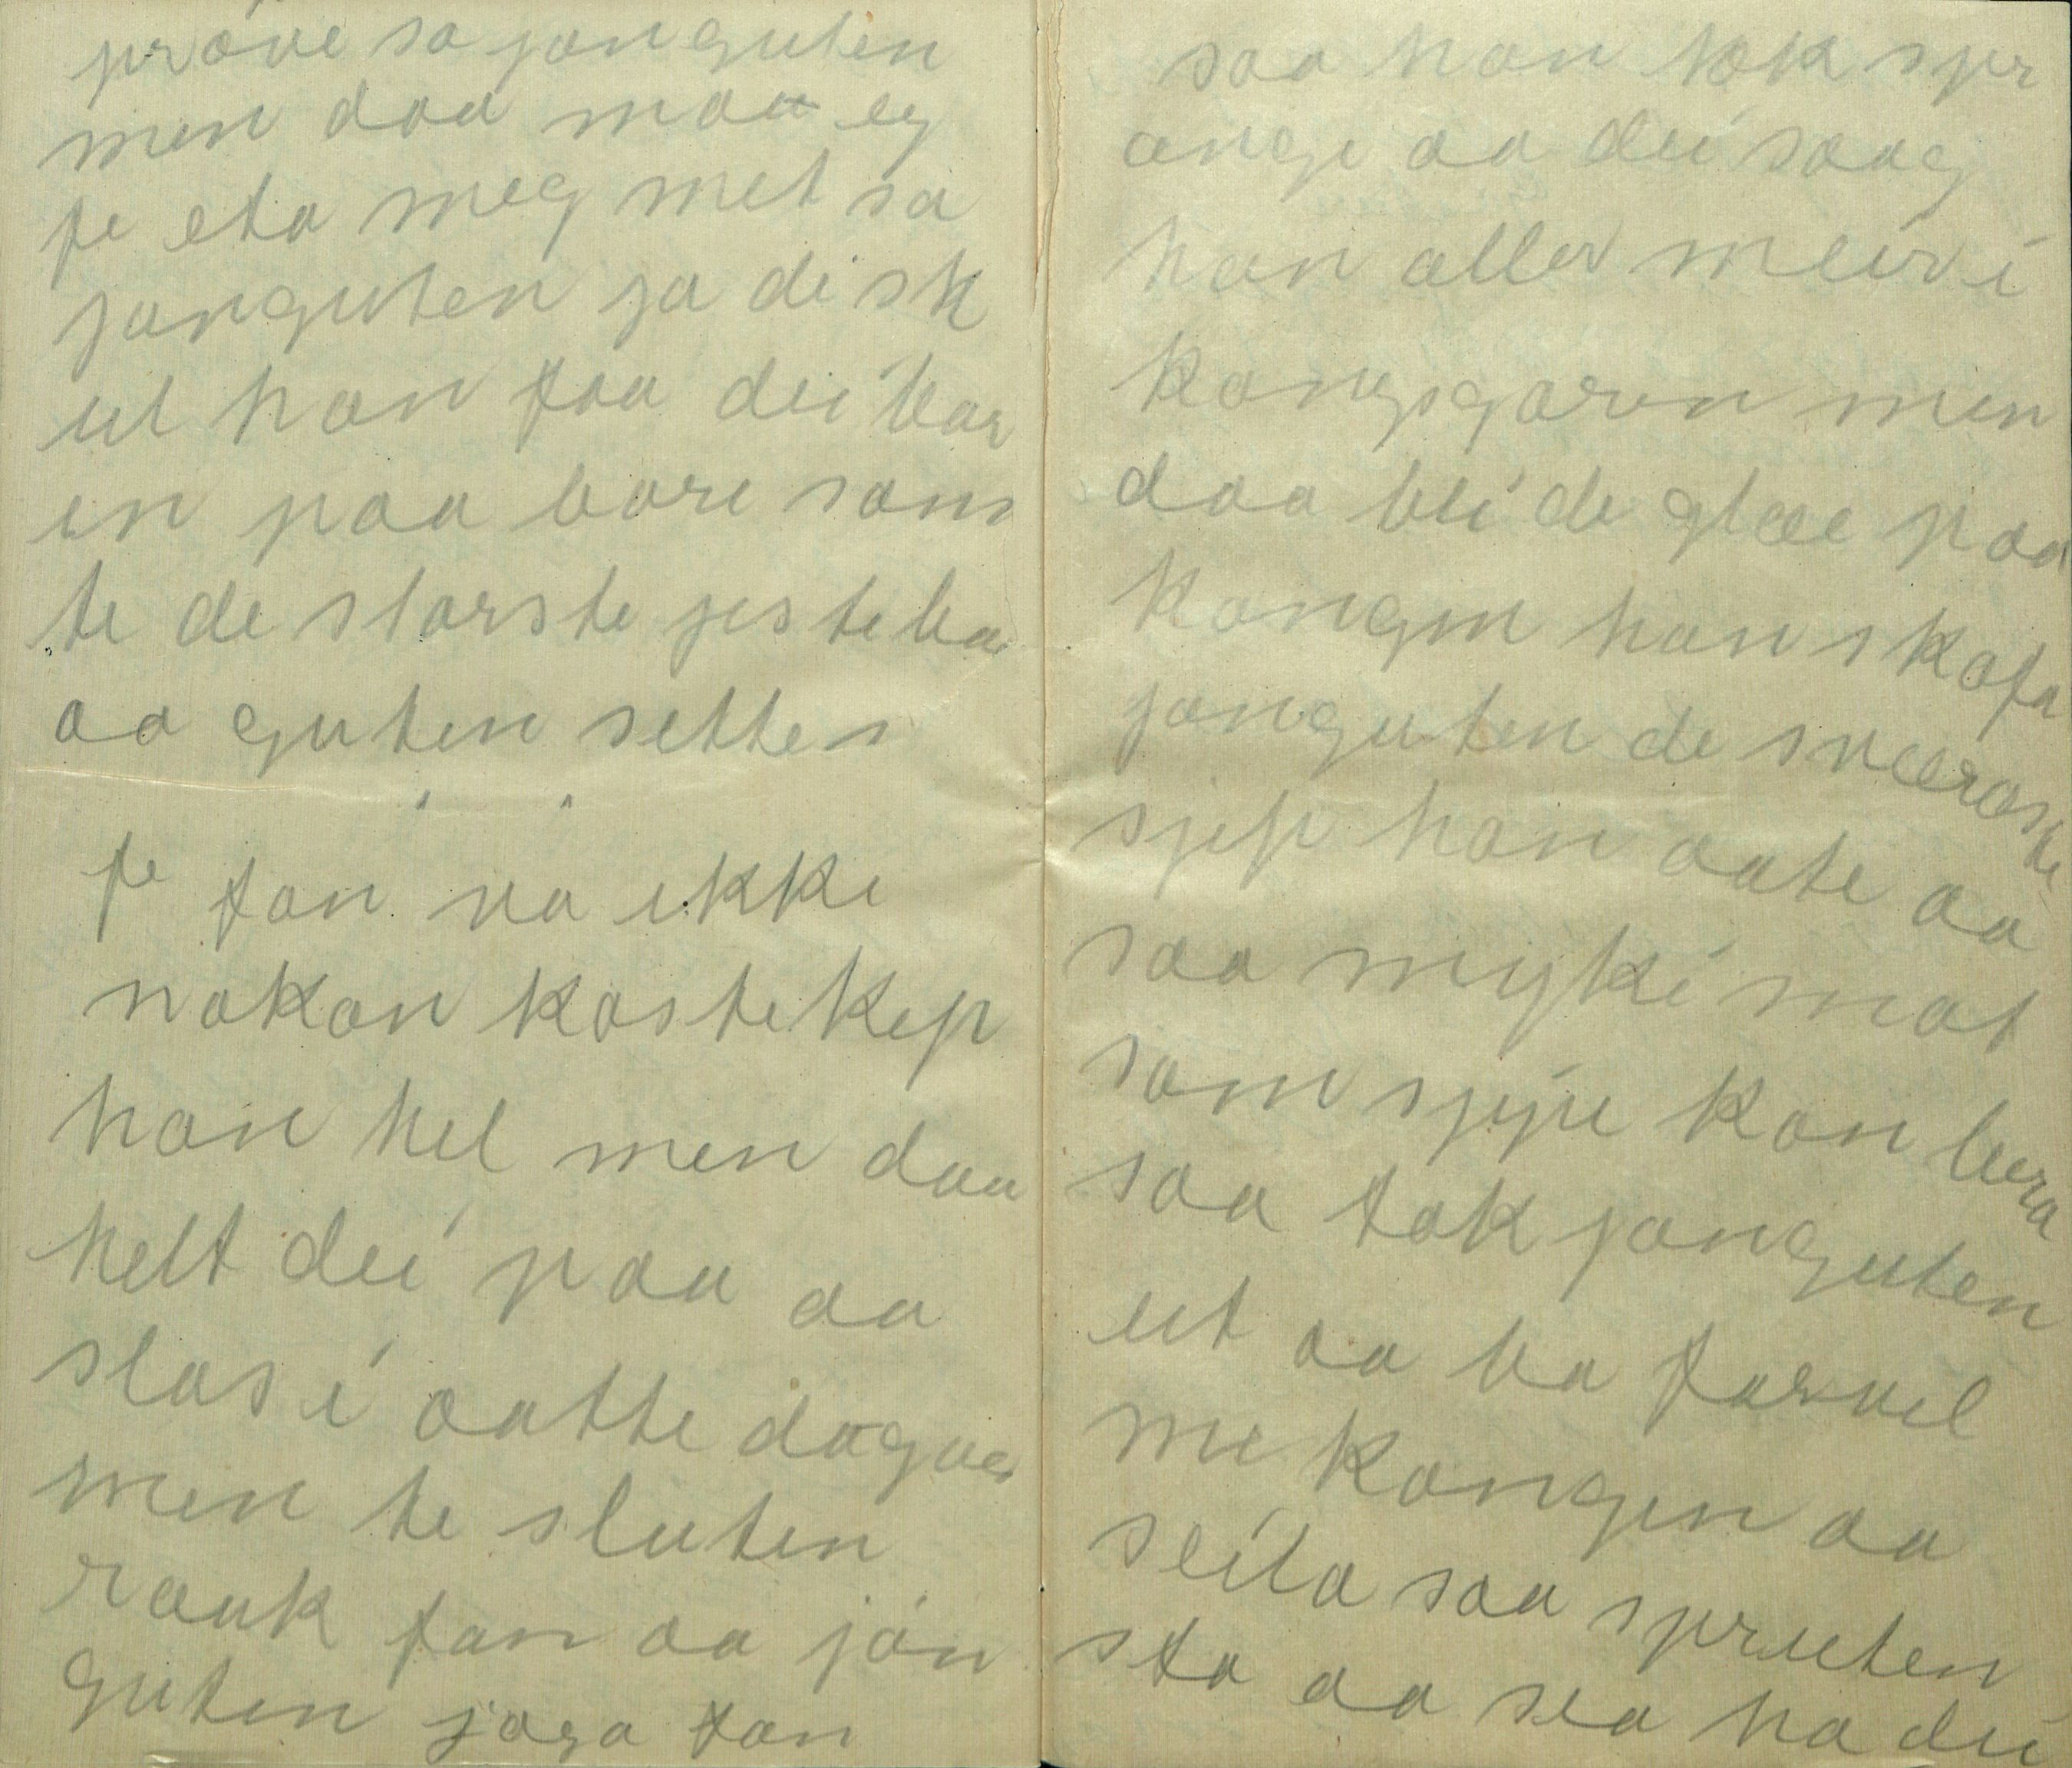 prøve sa jonguten
men daa maa eg
fe eta meg met sa
jonguten ja di sk
ul han faa dei bar
en paa bore som
te de største jesteba
aa guten settes
fe fan va ikke
nokon kostekep
han hel men daa
helt dei paa aa
slas i aatte dagaa
men te sluten
rauk fan aa jon
guten jaga fan
saa han tok spr
ange aa dei saag
han aller meir i
kongsgaren men
daa blei de glæe paa
kongen han skafa
jonguten de sværaste
sjep han aate aa
saa myke mat
som sjepe kon bera
saa tok jonguten
ut aa ba farvel
me kongen aa
seila saa spruten
sto aa sea ha dei